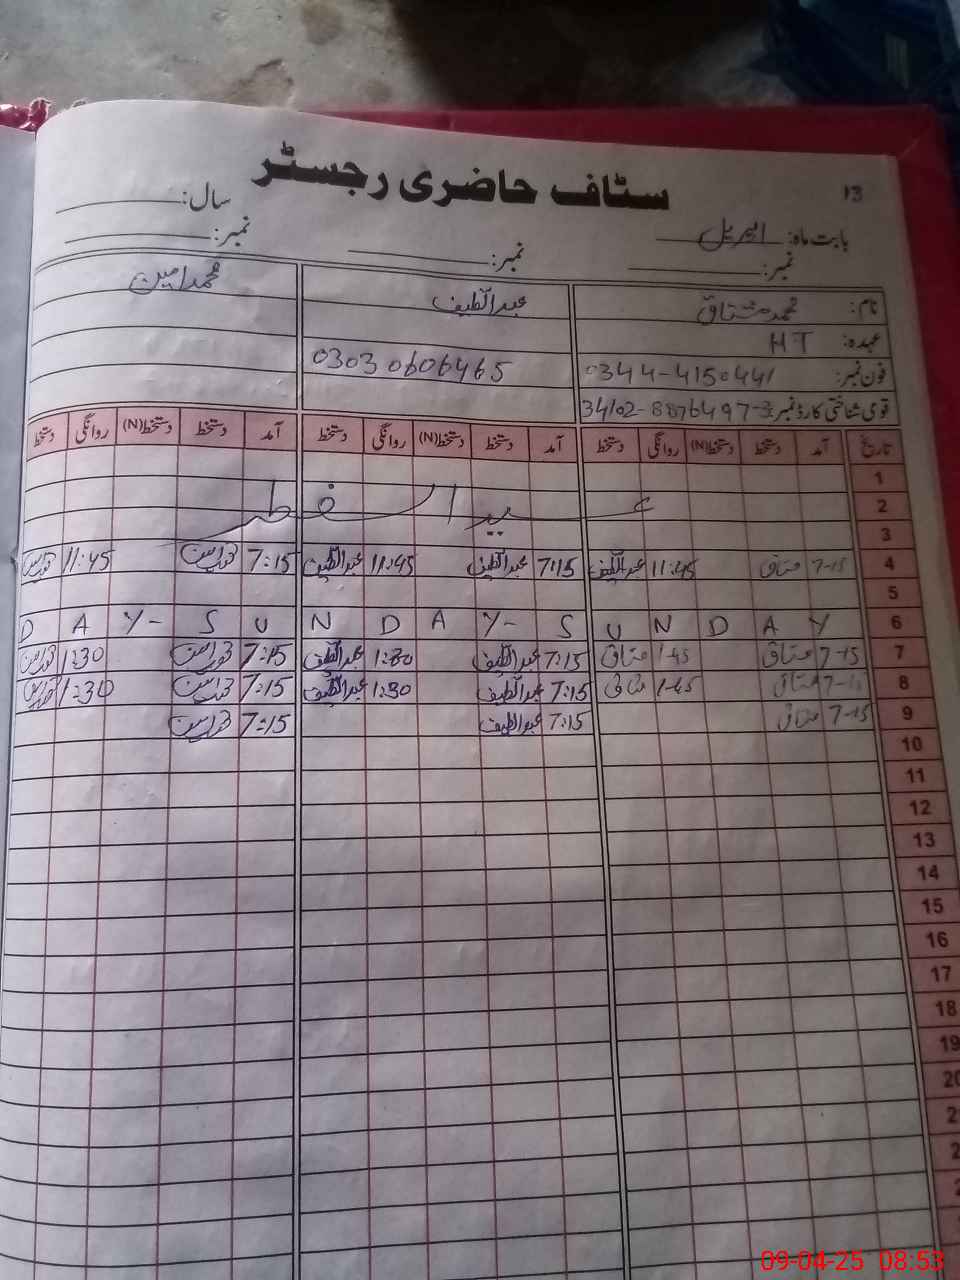 13
سٹاف حاضری رجسٹر
بابت ماہ: اپریل سال:
نمبر: نمبر: نمبر:
نام: محمد مشتاق عبدالطیف محمد امین
عہدہ: HT
فون نمبر: 0344-4150441 03030606465
قومی شناختی کارڈ نمبر: 34102-8876497-3
تاریخ آمد دستخط دستخط(N) روانگی دستخط آمد دستخط دستخط(N) روانگی دستخط آمد دستخط دستخط(N) روانگی دستخط
1
2 عید الفطر
3
4 7-15 مشتاق 11:45 عبدالطیف 7:15 عبدالطیف 11:45 عبدالطیف 7:15 محمد امین 11:45 محمد امین
5
6 Y A D N U S Y- A D N U S Y- A D
7 7-15 مشتاق 1-45 مشتاق 7:15 عبدالطیف 1:30 عبدالطیف 7:15 محمد امین 1:30 محمد امین
8 7-15 مشتاق 1-45 مشتاق 7:15 عبدالطیف 1:30 عبدالطیف 7:15 محمد امین 1:30 محمد امین
9 7-15 مشتاق 7:15 عبدالطیف 7:15 محمد امین
10
11
12
13
14
15
16
17
18
19
09-04-25 08:53